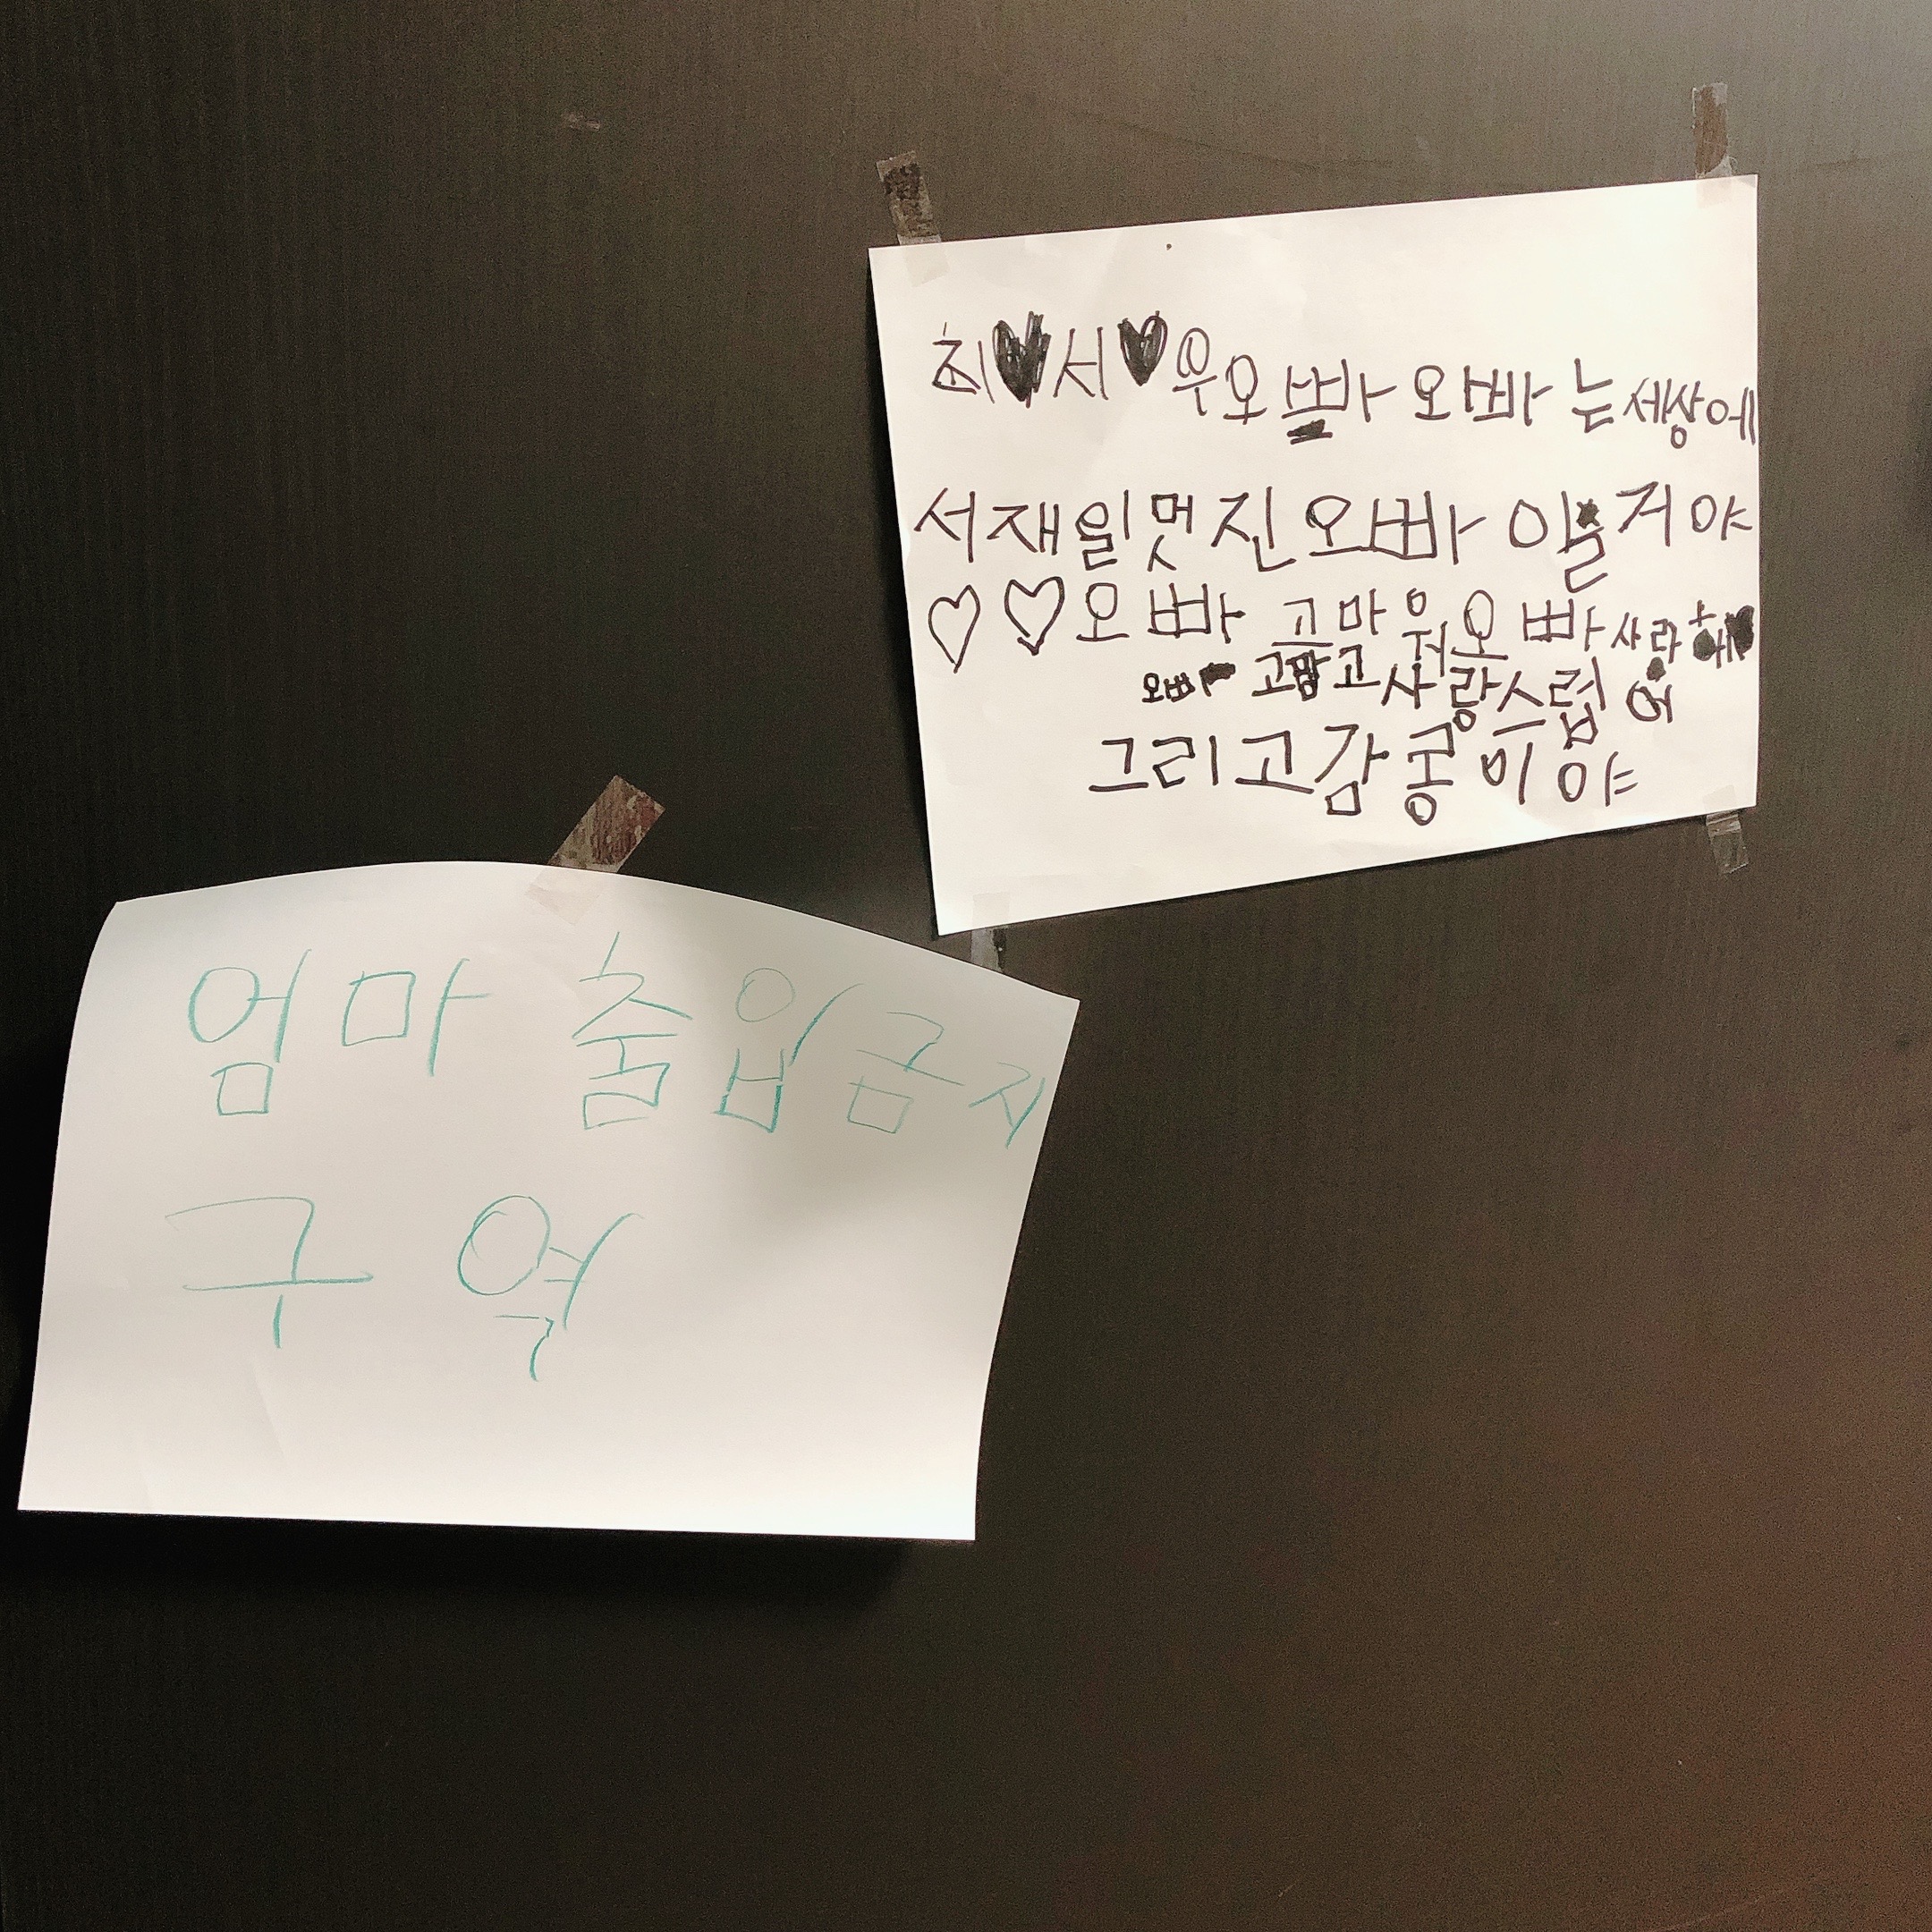 최♥서♥우오빠 오빠 는세상에
서재일멋진오빠 일거야
♡♡오빠 고마워오빠사라해
오빠 고맙고사랑스럽어
그리고감동이야
엄마 출입금지
구역